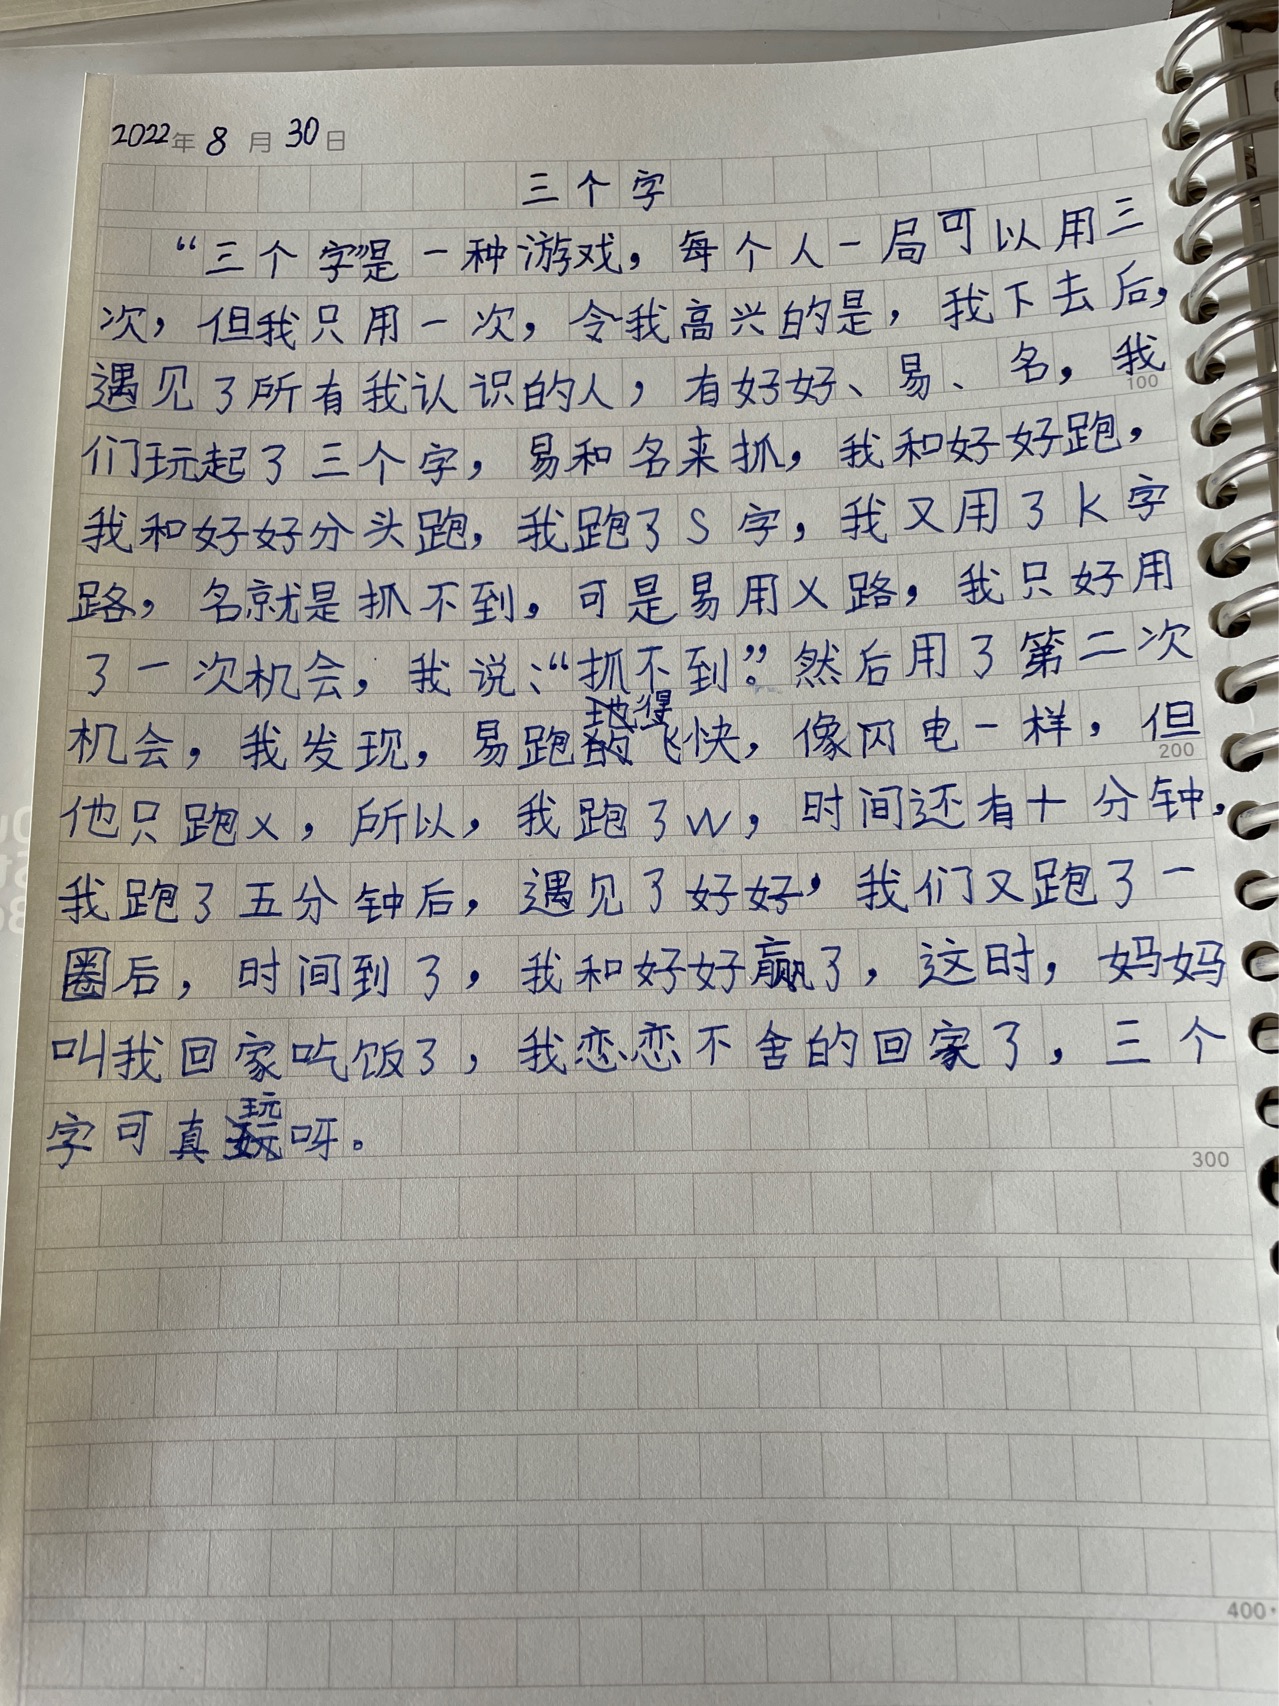 2022年 8 月 30日
三个字
“三个字”是一种游戏，每个人一局可以用三
次，但我只用一次，令我高兴的是，我下去后，
遇见了所有我认识的人，有好好、易、名，我
100
们玩起了三个字，易和名来抓，我和好好跑，
我和好好分头跑，我跑了S字，我又用了K字
路，名就是抓不到，可是易用X路，我只好用
了一次机会，我说：“抓不到”。然后用了第二次
机会，我发现，易跑得飞快，像闪电一样，但
200
他只跑x，所以，我跑了w，时间还有十分钟，
我跑了五分钟后，遇见了好好，我们又跑了一
圈后，时间到了，我和好好赢了，这时，妈妈
叫我回家吃饭了，我恋恋不舍的回家了，三个
字可真玩呀。
300
400